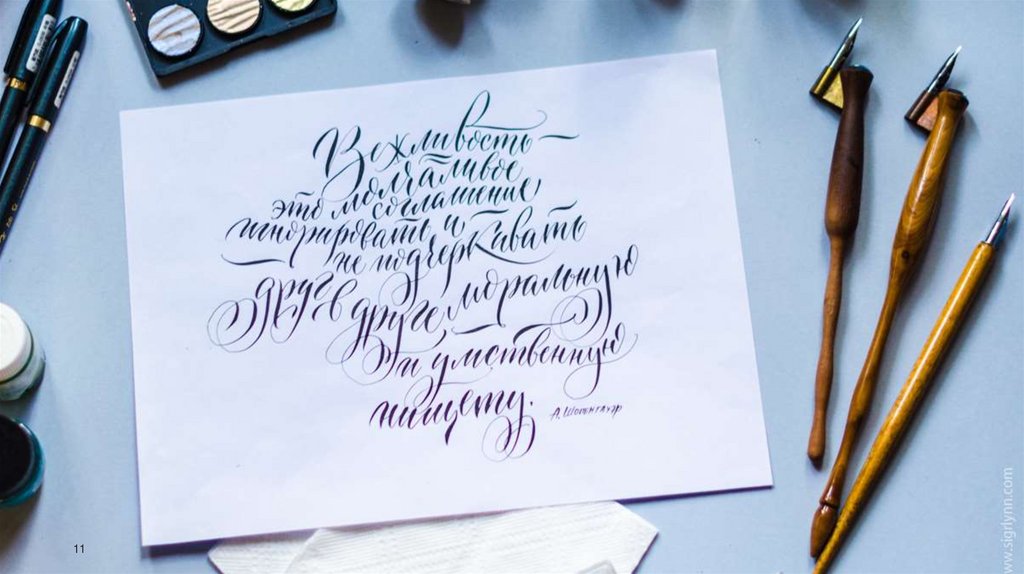 Вежливость –
это молчаливое
соглашение
игнорировать и
не подчеркивать
друг в друге моральную
и умственную
нищету.
А. Шопенгауэр
11
www.sigrlynn.com